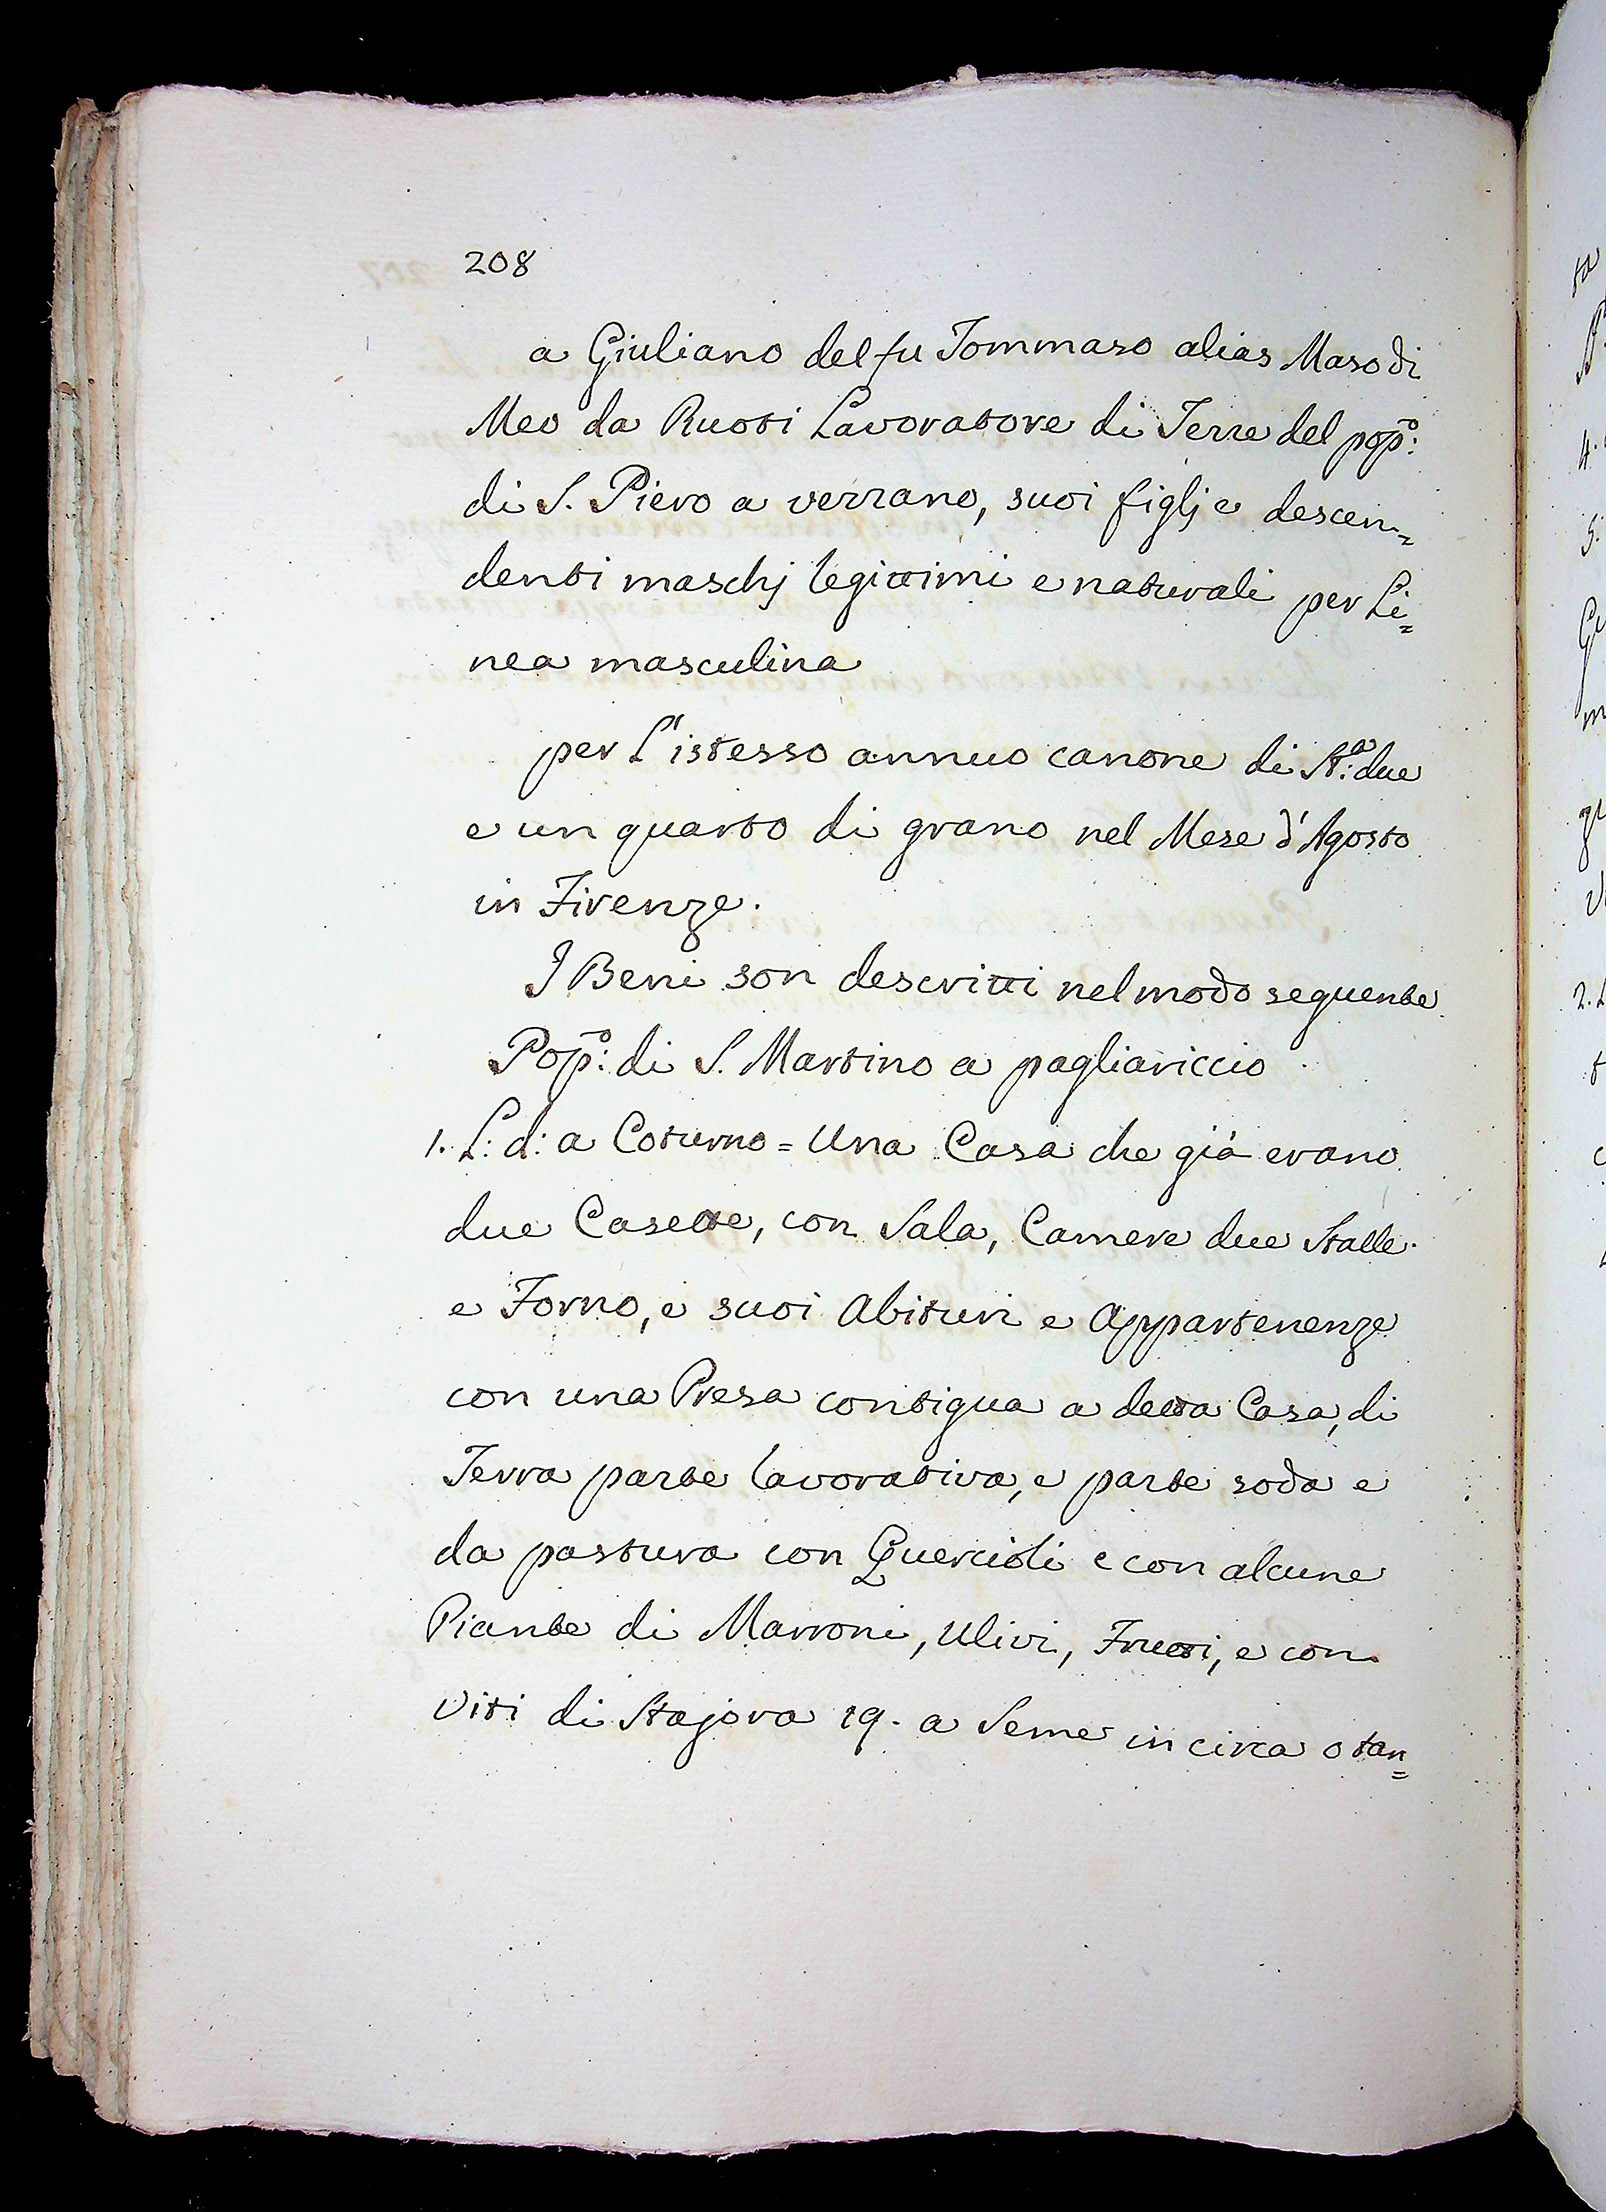 208
a Giuliano del fu Tommaso alias Maso di
Meo da Ruoti Lavoratore di Terre del popº:
di S. Piero a verrano, suoi figlj e descen=
denti maschj legittimi e naturali per Li=
nea masculina
per l'istesso annuo canone di Stª: due
e un quarto di grano nel Mese d'Agosto
in Firenze.
I Beni son descritti nel modo seguente
Popº: di S. Martino a pagliariccio
1. L: d: a Coturno = Una Casa che già erano
due Casette, con Sala, Camere due Stalle.
e Forno, e suoi Abituri e Appartenenze
con una Presa contigua a detta Casa, di
Terra parte lavorativa, e parte soda e
da pastura con Quercioli e con alcune
Piante di Marroni, Ulivi, Frutti, e con
Viti di Stajora 19. a Seme in circa o tan=